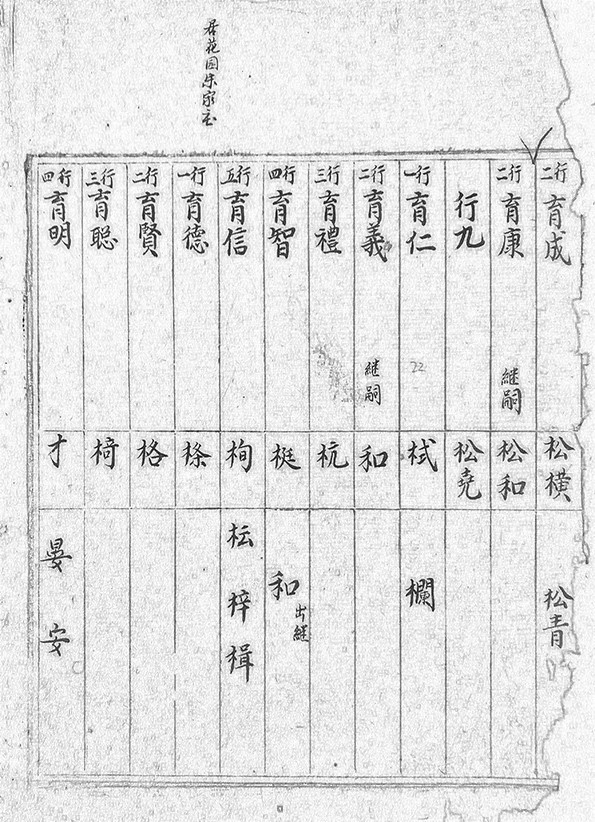 居花园朱家
行二 育成 松橫 松青
行二 育康 継嗣 松和
行九 松堯
行一 育仁 栻 欄
行二 育義 継嗣 和
行三 育禮 杭
行四 育智 梃 和 出継
行五 育信 栒 枟 梓 楫
行一 育德 條
行二 育賢 格
行三 育聡 椅
行四 育明 才 晏 安